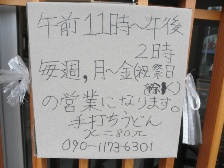 午前11時〜午後
2時
毎週,月〜金(祝祭日
除く)
の営業になります。
手打ちうどん
090-1173-6301